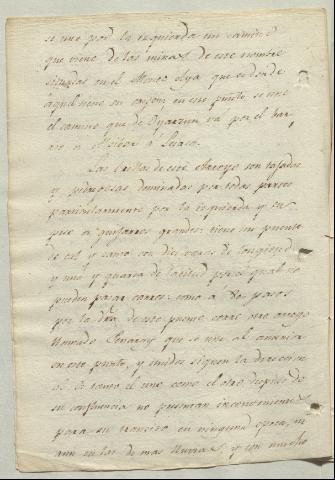 se une por la izquierda un camino
que viene de las minas de este nombre
situadas en el Monte Aya que es donde
aquel tiene su origen; en este punto se une
el camino que de Oyarzun va por el bar-
rio a Lesaca.
Las orillas de este Arroyo son tajadas
y pedregosas dominadas por todas partes
particularmente por la izquierda y en
que guijarros grandes: tiene un puente
de cal y canto con diez varas de longitud
y una y quarta de latitud por el qual no
pueden pasar carros: como a 80 pasos
por la dra. de este puente corre otro arroyo
llamado que se une al anterior
en este punto, y unidos siguen la direccion
al tanto el uno como el otro despues de
su confluencia no presentan inconveniente
para su transito en ninguna epoca, ni
aun en las de mas lluvias, y con mucho